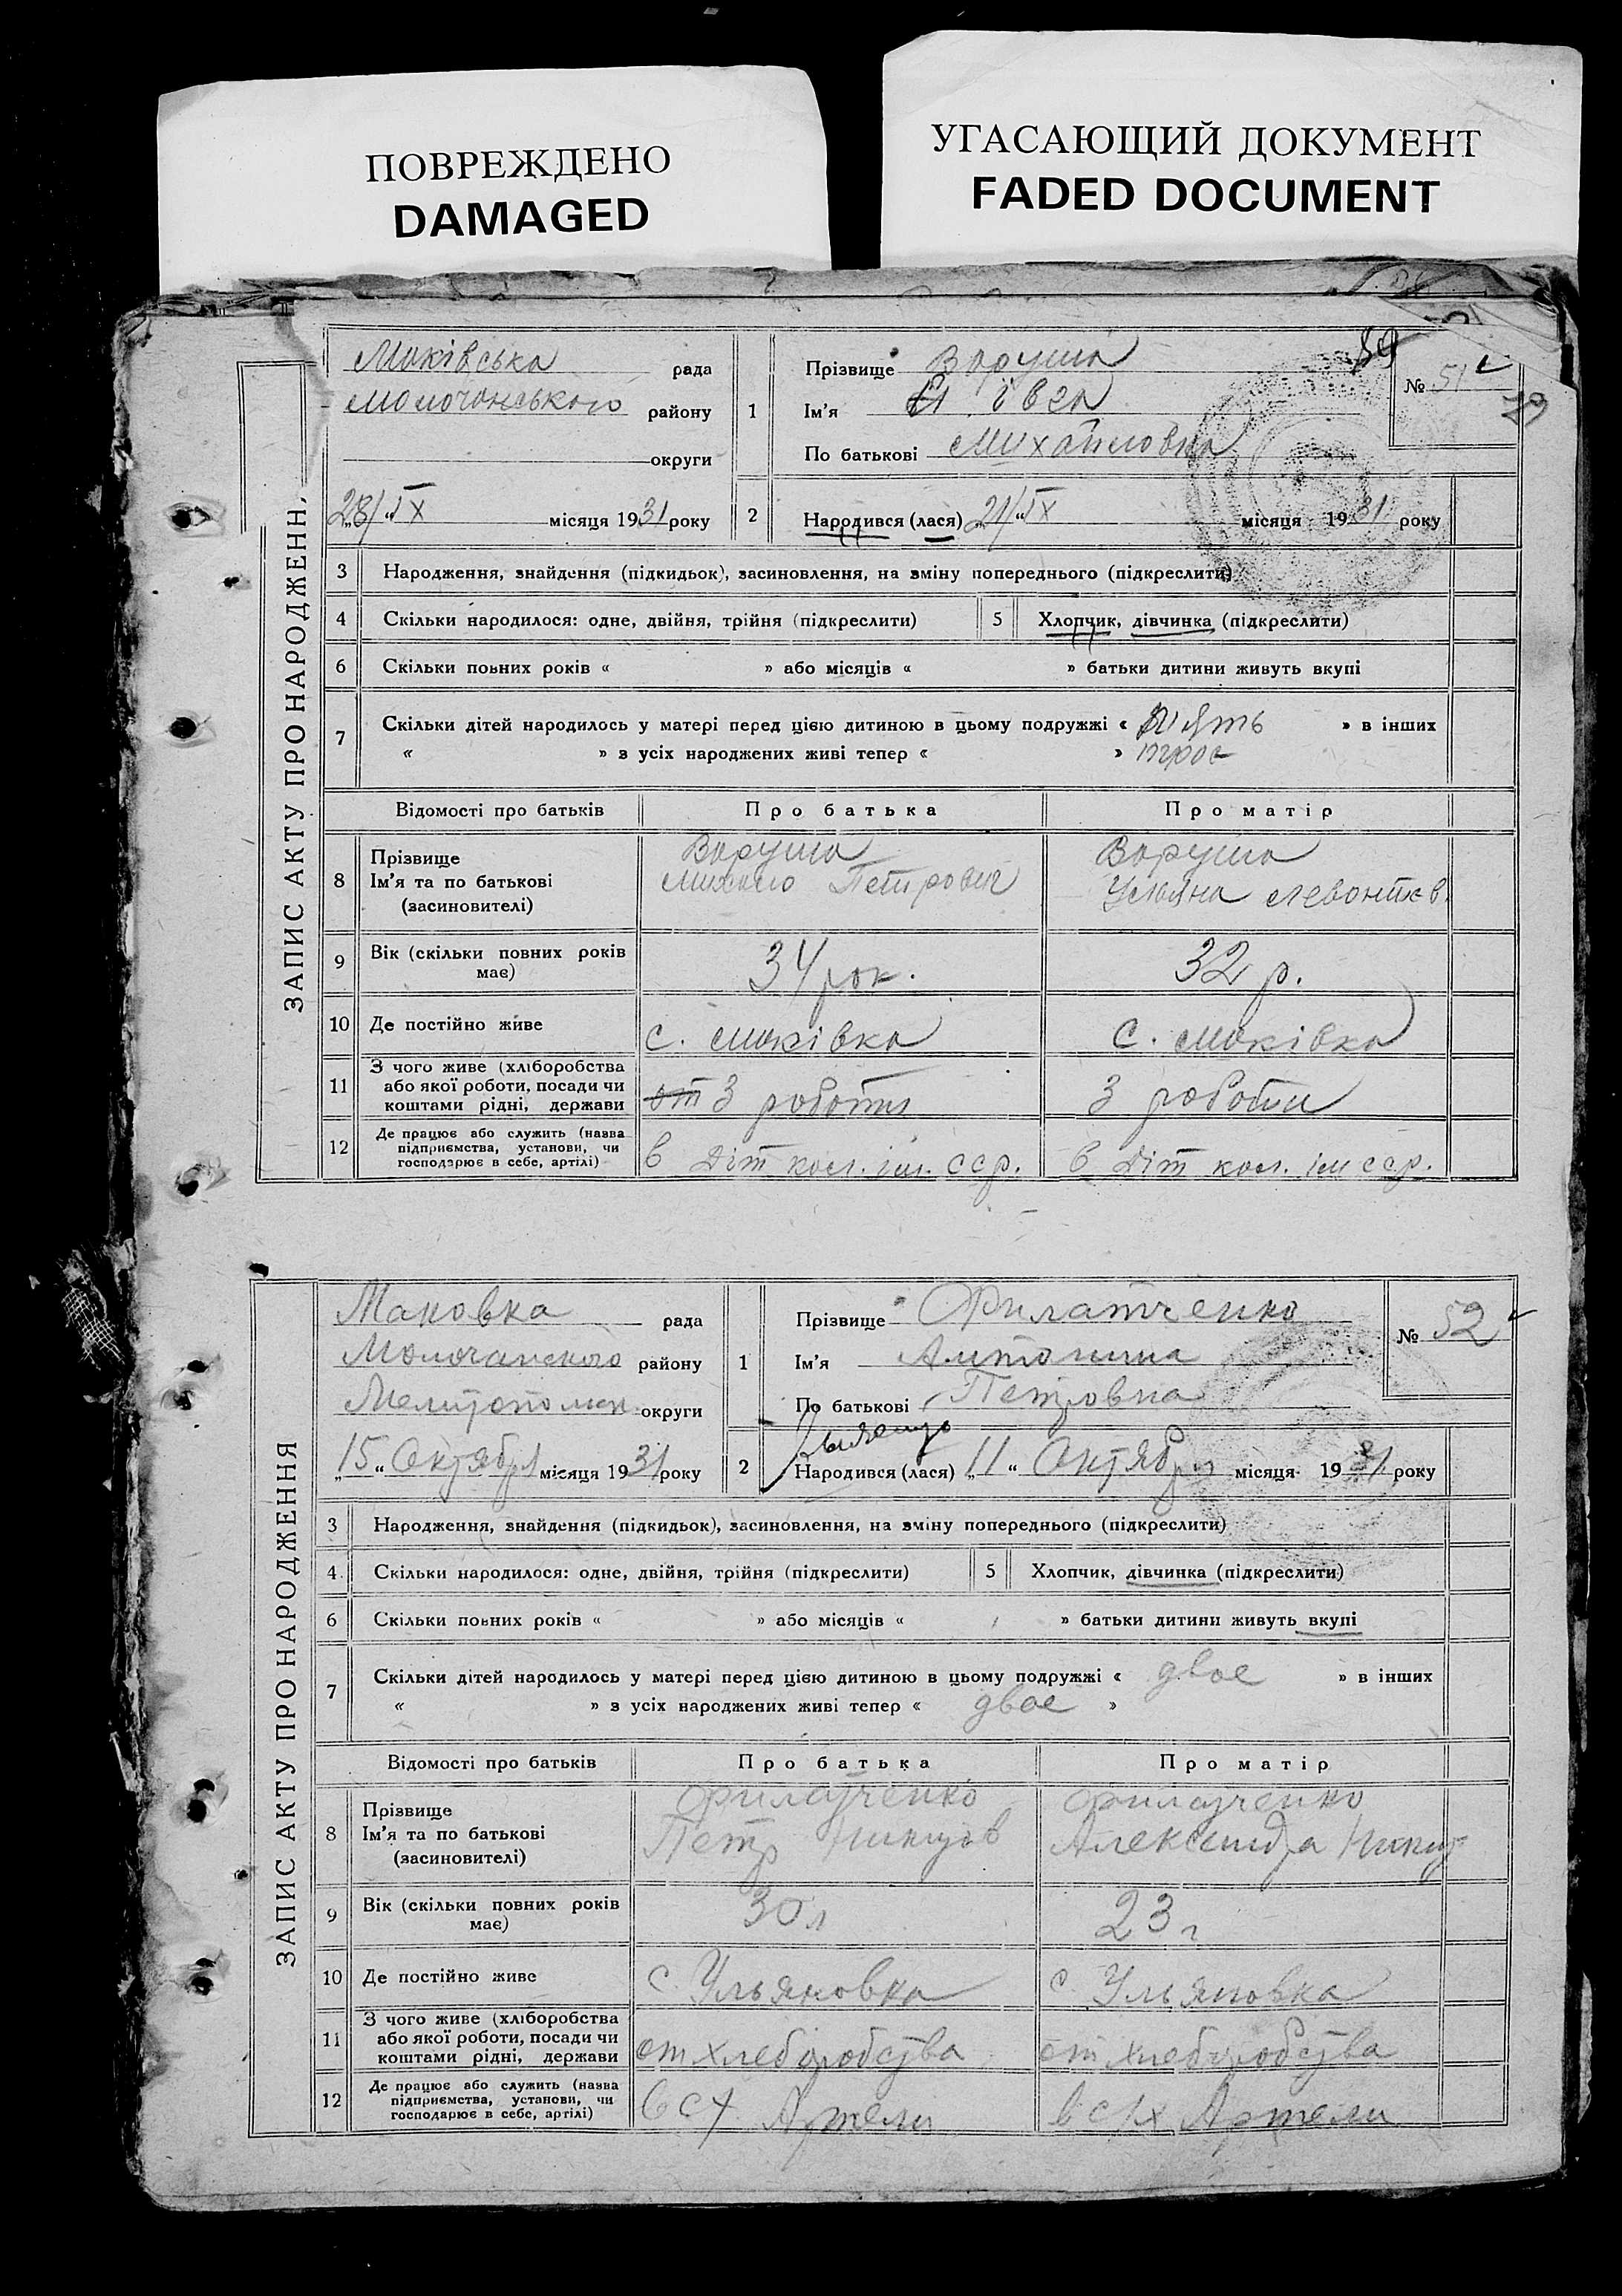 ПОВРЕЖДЕНО
DAMAGED
УГАСАЮЩИЙ ДОКУМЕНТ
FADED DOCUMENT
ЗАПИС АКТУ ПРО НАРОДЖЕНН
Маківська рада
Молочанського району
округи
28/ІХ місяця 1931 року
1
Прізвище Варуша
Ім'я
По батькові Михайловна
№ 51
79
2
Народився (лася) 21/ІХ місяця 1931 року
3 Народження, знайдення (підкидьок), засиновлення, на зміну попереднього (підкреслити)
4 Скільки народилося: одне, двійня, трійня (підкреслити) 5 Хлопчик, дівчинка (підкреслити)
6 Скільки повних років « » або місяців « » батьки дитини живуть вкупі
7 Скільки дітей народилось у матері перед цією дитиною в цьому подружжі « пять » в інших
« » з усіх народжених живі тепер « » трое
Відомості про батьків Про батька Про матір
8 Прізвище Ім'я та по батькові (засновителі)
Варуша
Михайло Петрович
Варуша
Уляна Левонтєв.
9 Вік (скільки повних років має) 34 рок. 32 р.
10 Де постійно живе с. Маківка с. Маківка
11 З чого живе (хліборобства або якої роботи, посади чи коштами рідні, держави З роботи З роботи
12 Де працює або служить (назва підприємства, установи, чи господарює в себе, артілі) в Діт кол. ім. ССР. в Діт кол. ім ССР.
ЗАПИС АКТУ ПРО НАРОДЖЕННЯ
Маковка рада
Молочанского району
Мелитополск. округи
„15“ Октября місяця 1931 року
1
Прізвище Филатченко
Ім'я Антонина
По батькові Петровна
№ 52
2
Народився (лася) „11“ Октября місяця 1931 року
3 Народження, знайдення (підкидьок), засиновлення, на зміну попереднього (підкреслити)
4 Скільки народилося: одне, двійня, трійня (підкреслити) 5 Хлопчик, дівчинка (підкреслити)
6 Скільки повних років « » або місяців « » батьки дитини живуть вкупі
7 Скільки дітей народилось у матері перед цією дитиною в цьому подружжі « двое » в інших
« » з усіх народжених живі тепер « двое »
Відомості про батьків Про батька Про матір
8 Прізвище Ім'я та по батькові (засиновителі)
Филатченко
Петр
Филатченко
Александра
9 Вік (скільки повних років має) 30 л 23 г
10 Де постійно живе с. Ульяновка с. Ульяновка
11 З чого живе (хліборобства або якої роботи, посади чи коштами рідні, держави от хлеборобства от хлеборобства
12 Де працює або служить (назва підприємства, установи, чи господарює в себе, артілі) в с/х Артели в с/х Артели